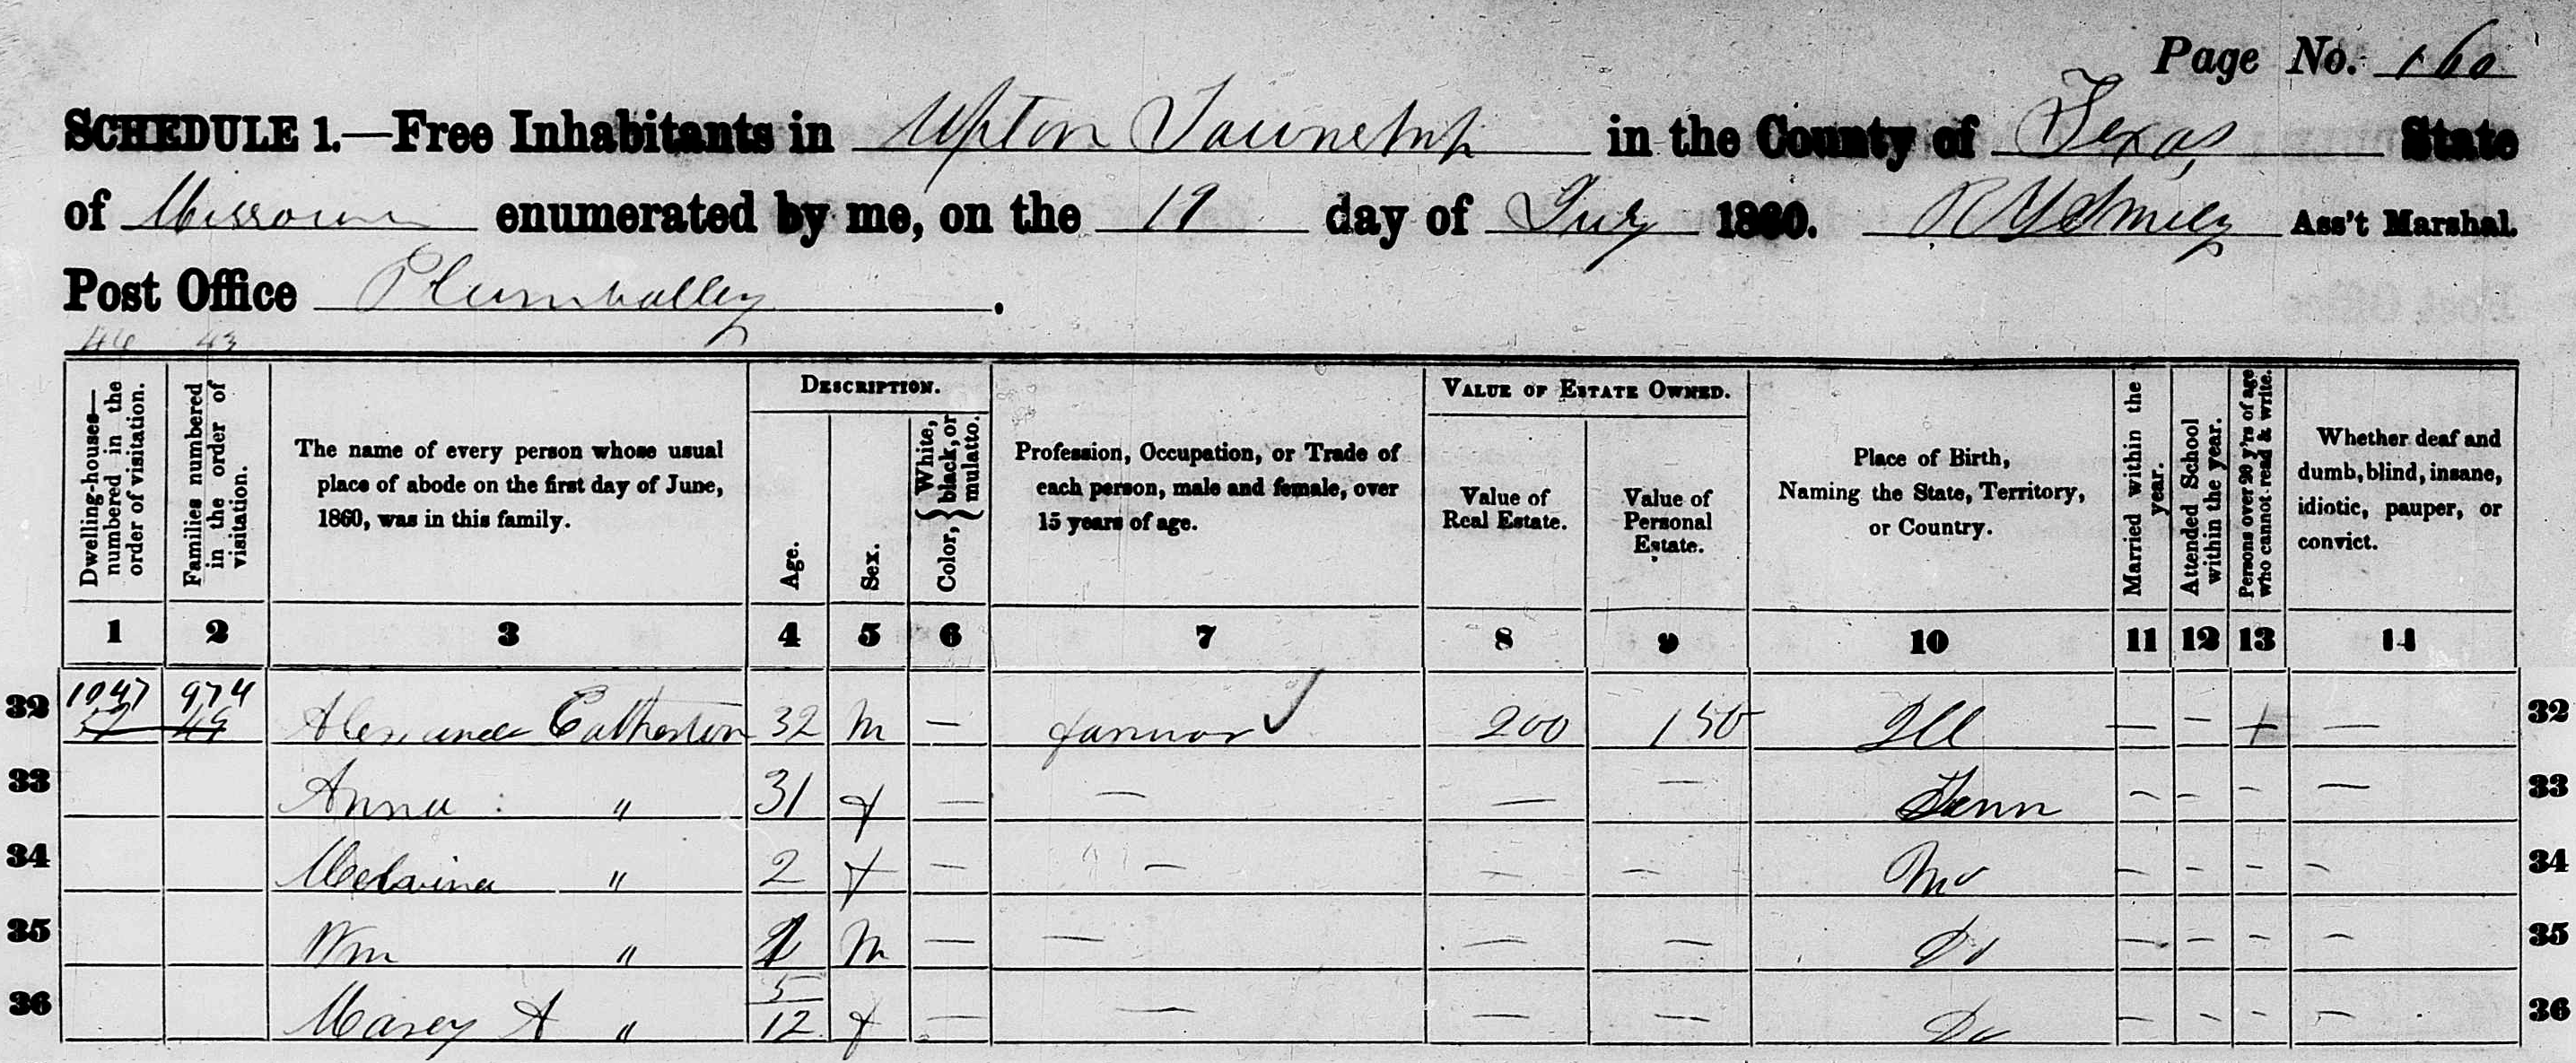 Page No. 160
SCHEDULE 1.—Free Inhabitants in Upton Township in the County of Texas State
of Missouri enumerated by me, on the 19 day of July 1860. Ass't Marshal.
Post Office Plumvalley.
46 43
Dwelling-houses—numbered in the order of visitation.
Families numbered in the order of visitation.
The name of every person whose usual
place of abode on the first day of June,
1860, was in this family.
DESCRIPTION.
Age.
Sex.
Color, { White, black, or mulatto.
Profession, Occupation, or Trade of
each person, male and female, over
15 years of age.
VALUE OF ESTATE OWNED.
Value of
Real Estate.
Value of
Personal
Estate.
Place of Birth,
Naming the State, Territory,
or Country.
Married within the year.
Attended School within the year.
Persons over 20 y'rs of age who cannot read & write.
Whether deaf and
dumb, blind, insane,
idiotic, pauper, or
convict.
1 2 3 4 5 6 7 8 9 10 11 12 13 14
32 1047 974 Alexander 32 m — farmor 200 150 Ill — — + — 32
33 Anna " 31 f — — — — Tenn — — — — 33
34 Melvina " 2 f — — — — Mo — — — — 34
35 Wm " 1 m — — — — Do — — — — 35
36 Marey A " 5/12 f — — — — Do — — — — 36